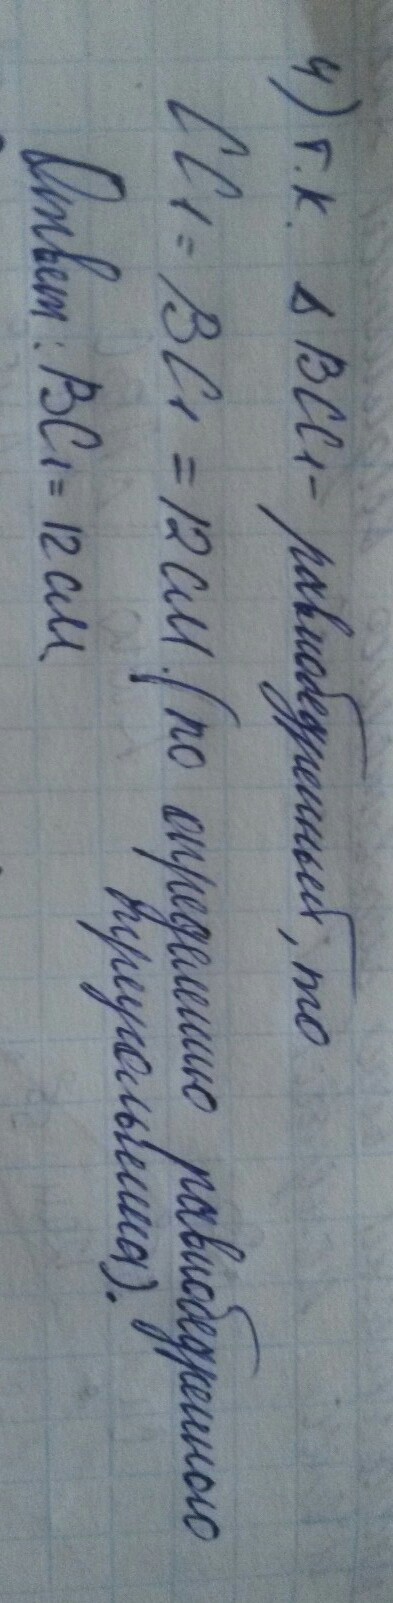 4) т.к. △ BCC1 - равнобедренный, то
CC1 = BC1 = 12 см. (по определению равнобедренного
треугольника).
Ответ: BC1 = 12 см